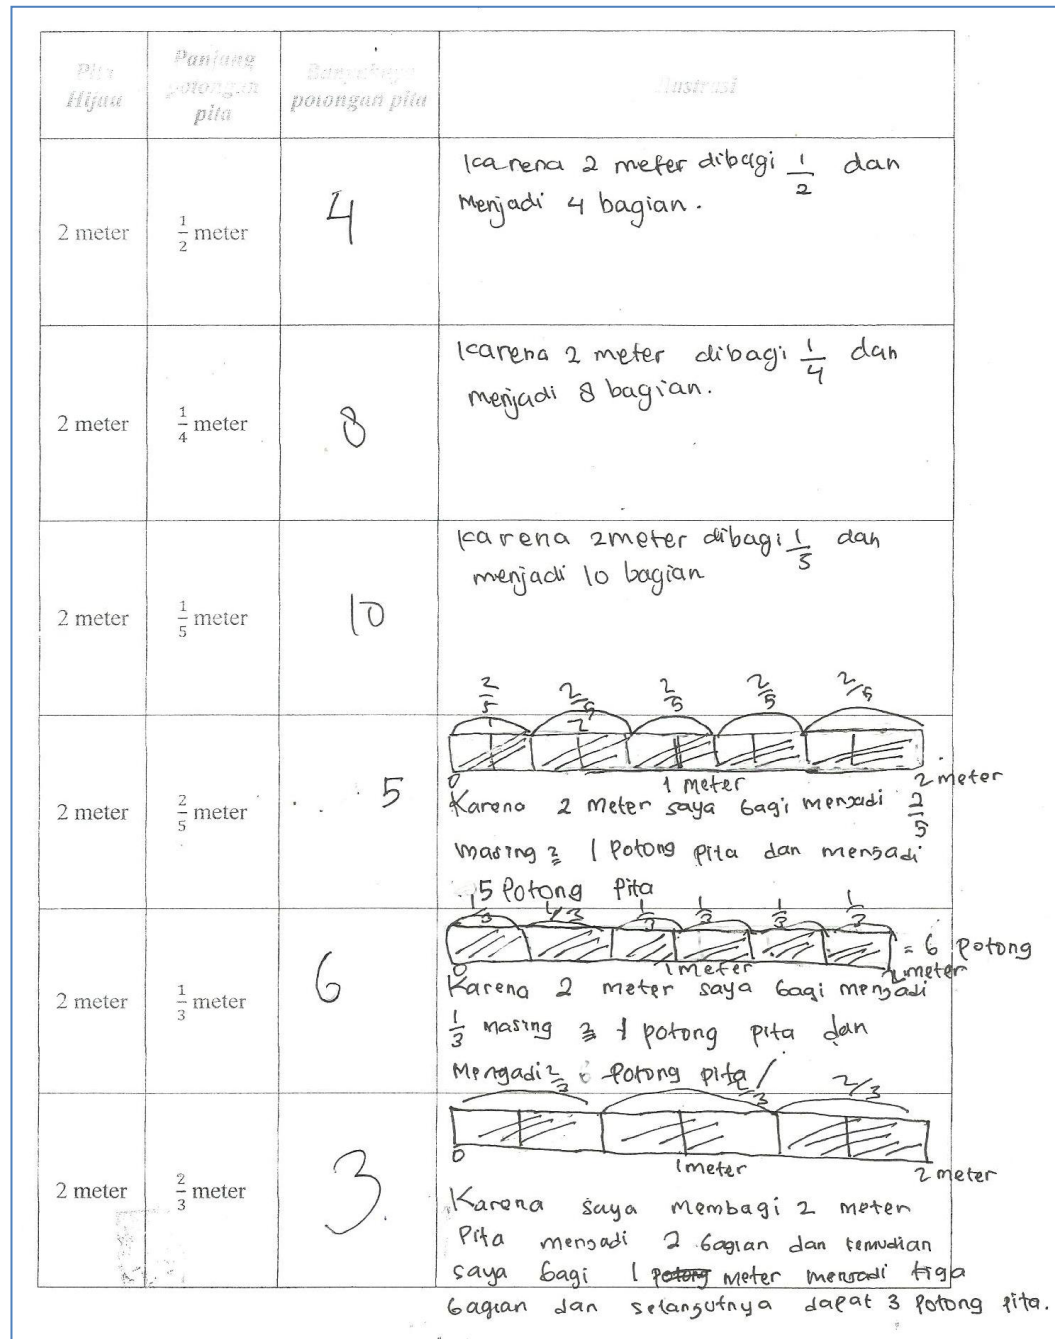 Pita Hijau
Panjang potongan pita
Banyaknya potongan pita
Ilustrasi
2 meter
1/2 meter
4
karena 2 meter dibagi 1/2 dan
menjadi 4 bagian.
2 meter
1/4 meter
8
karena 2 meter dibagi 1/4 dan
menjadi 8 bagian.
2 meter
1/5 meter
10
karena 2 meter dibagi 1/5 dan
menjadi 10 bagian
2 meter
2/5 meter
5
2/5 2/5 2/5 2/5 2/5
1 2
0 1 meter 2 meter
Karena 2 meter saya bagi menjadi 2/5
masing 2 1 potong pita dan menjadi
5 potong pita
2 meter
1/3 meter
6
1/3 1/3 1/3 1/3 1/3 1/3
= 6 potong
0 1 meter 2 meter
Karena 2 meter saya bagi menjadi
1/3 masing 2 1 potong pita dan
Menjadi 6 potong pita
2 meter
2/3 meter
3
2/3 2/3 2/3
0 1 meter 2 meter
Karena saya membagi 2 meter
Pita menjadi 2 bagian dan kemudian
saya bagi 1 meter menjadi tiga
bagian dan selanjutnya dapat 3 potong pita.